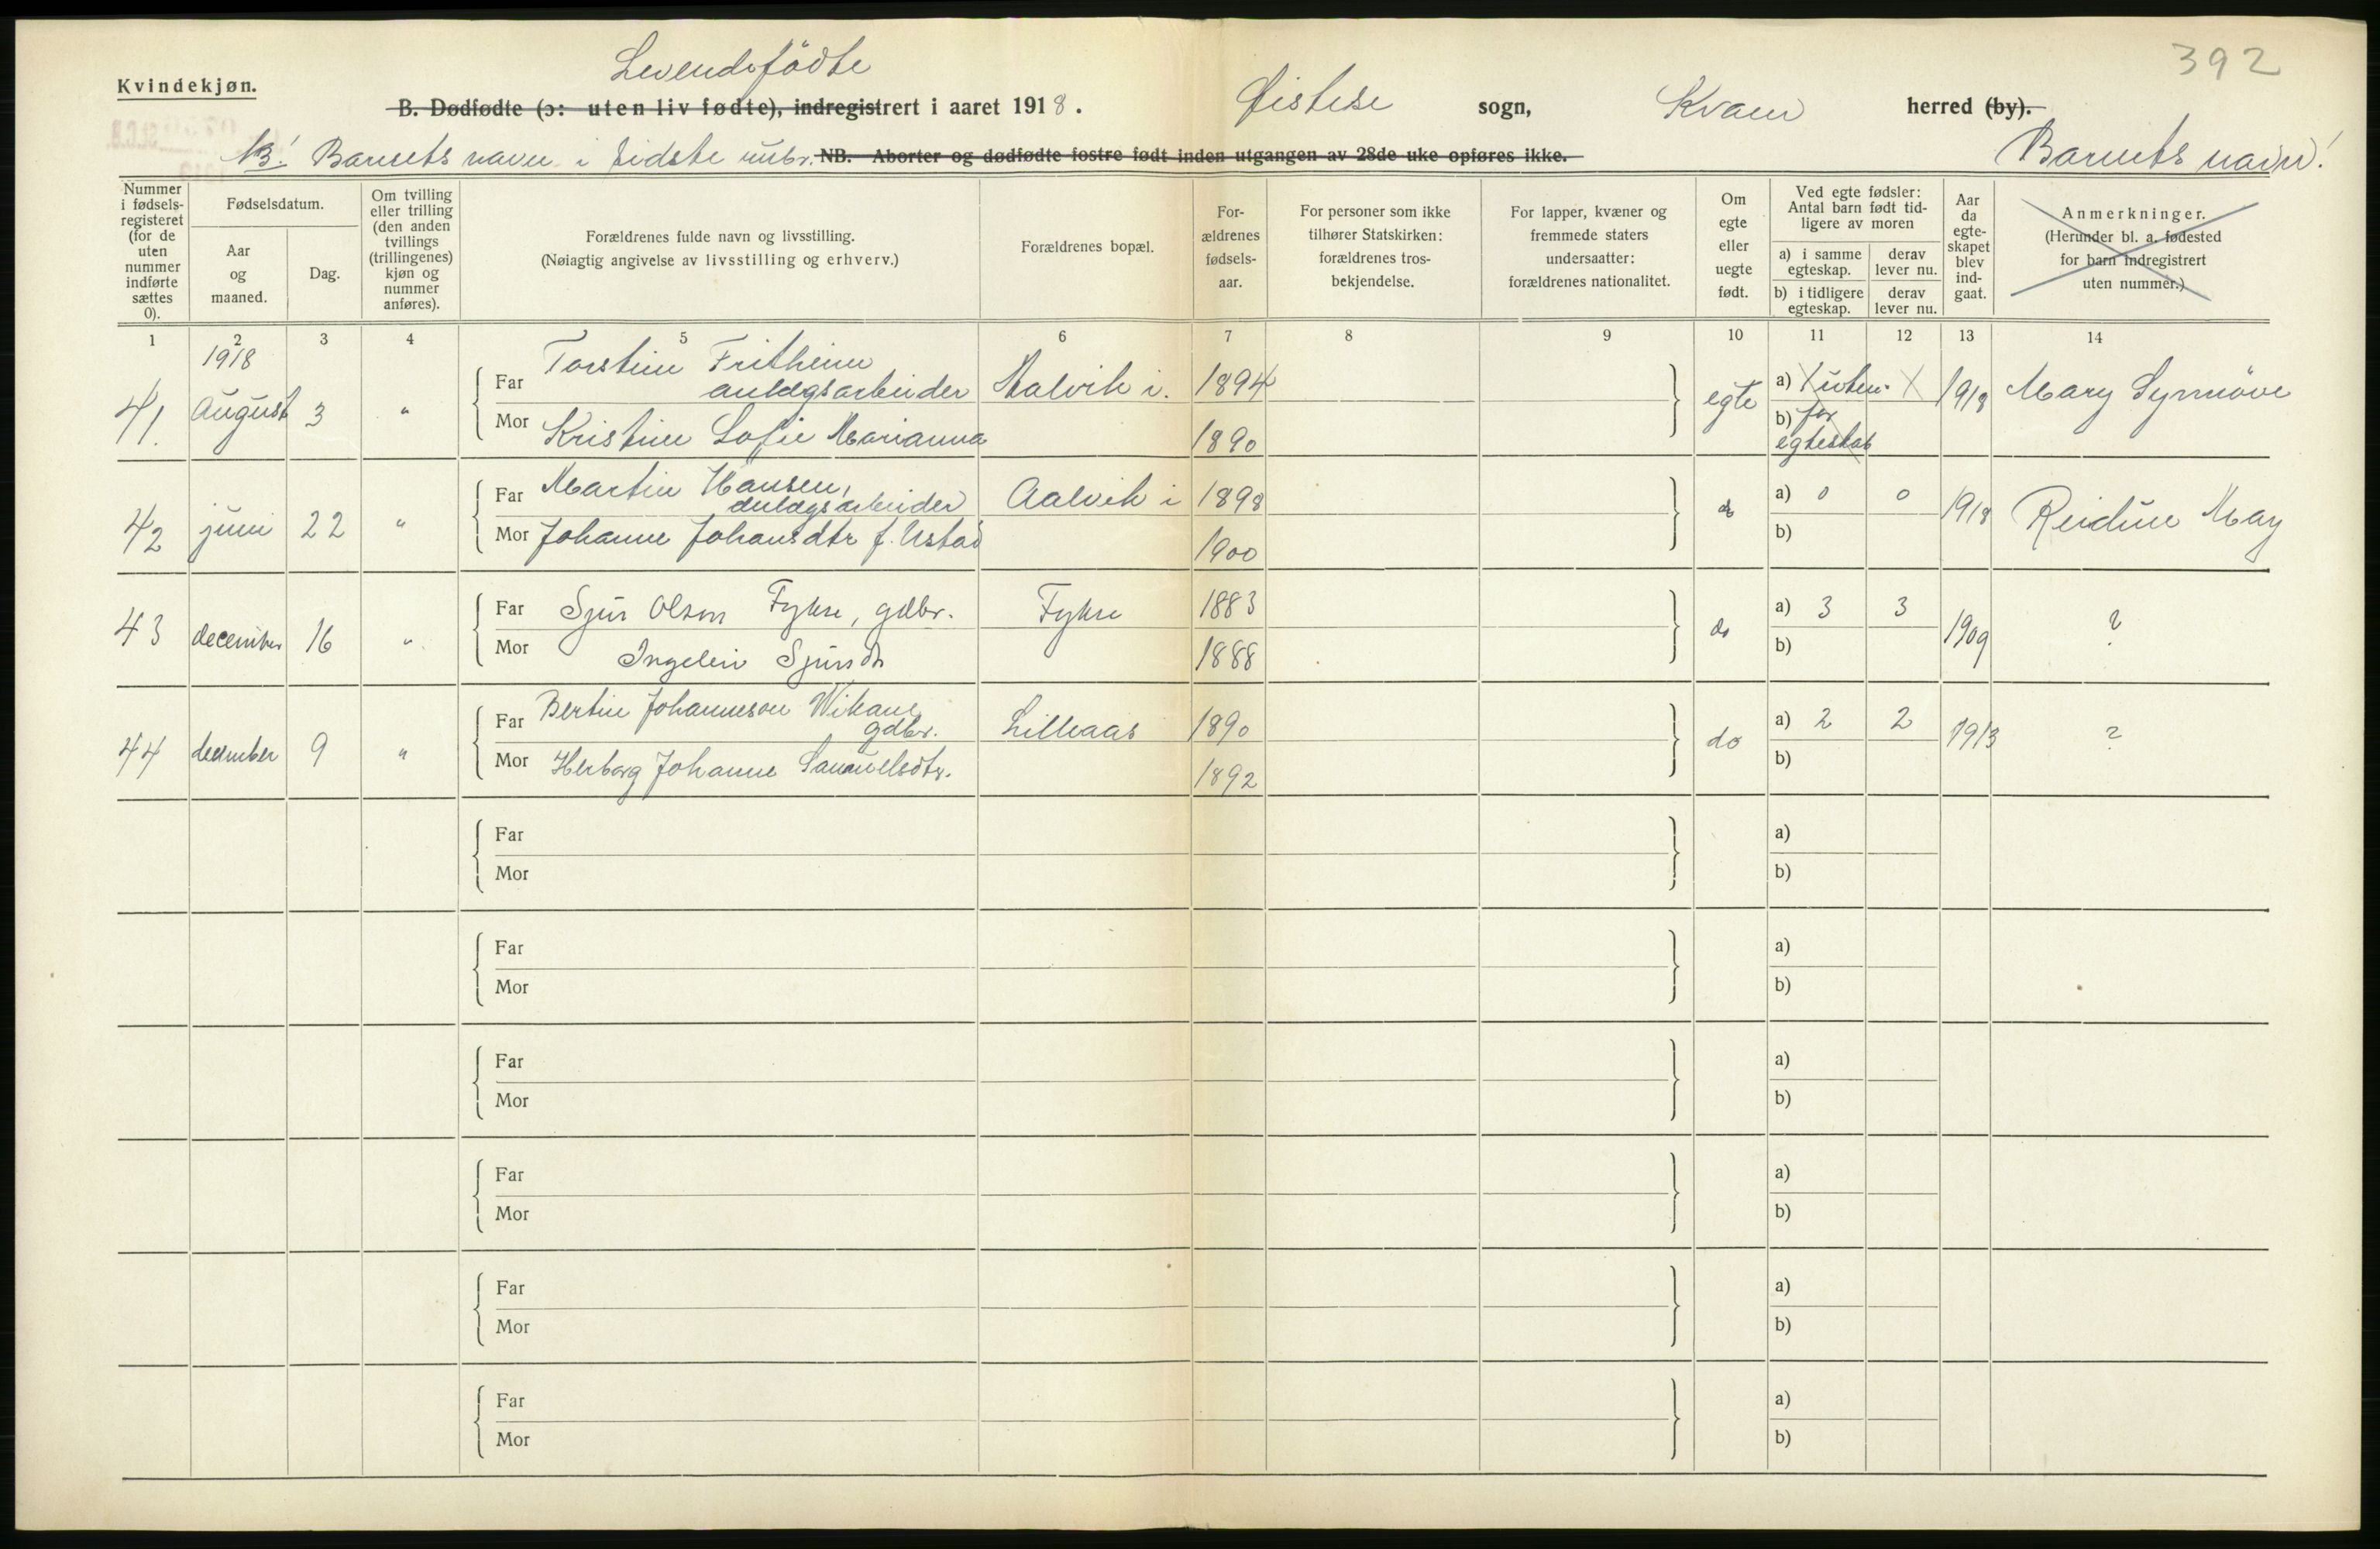 392
Kvindekjøn.
Levendefödte
B. Dødfødte (ɔ: uten liv fødte), indregistrert i aaret 1918. Øistese sogn, Kvam herred (by).
NB! Barnets navn i sidste rubr. NB. Aborter og dødfødte fostre født inden utgangen av 28de uke opføres ikke. Barnets navn!
Nummer i fødselsregisteret (for de uten nummer indførte sættes 0).
Fødselsdatum.
Aar og maaned.
Dag.
Om tvilling eller trilling (den anden tvillings (trillingenes) kjøn og nummer anføres).
Forældrenes fulde navn og livsstilling.
(Nøiagtig angivelse av livsstilling og erhverv.)
Forældrenes bopæl.
Forældrenes fødselsaar.
For personer som ikke tilhører Statskirken: forældrenes trosbekjendelse.
For lapper, kvæner og fremmede staters undersaatter: forældrenes nationalitet.
Om egte eller uegte født.
Ved egte fødsler: Antal barn født tidligere av moren
a) i samme egteskap. derav lever nu.
b) i tidligere egteskap. derav lever nu.
Aar da egteskapet blev indgaat.
Anmerkninger.
(Herunder bl. a. fødested for barn indregistrert uten nummer.)
1 2 3 4 5 6 7 8 9 10 11 12 13 14
1918
Far Torstein Fritheim
anlægsarbeider Aalvik i. 1894 a) 1 uten 1
41. August 3 " egte b) for 1918 Mary Synnöve
Mor Kristine Sofie Marianna 1890 egteskab
Far Martin Hansen,
anlægsarbeider Aalvik i 1898 a) 0 0
42 juni 22 " do b) 1918 Reidun May
Mor Johanne Johansdtr f. Ustad 1900
Far Sjur Olson Fykse, gdbr. Fykse 1883 a) 3 3
43 december 16 " do b) 1909 ?
Mor Ingelein Sjursdt 1888
Far Bertin Johanneson Wikane
gdbr. Lilleaas 1890 a) 2 2
44 december 9 " do b) 1913 ?
Mor Herborg Johanne Samuelsdtr. 1892
Far a)
Mor b)
Far a)
Mor b)
Far a)
Mor b)
Far a)
Mor b)
Far a)
Mor b)
Far a)
Mor b)